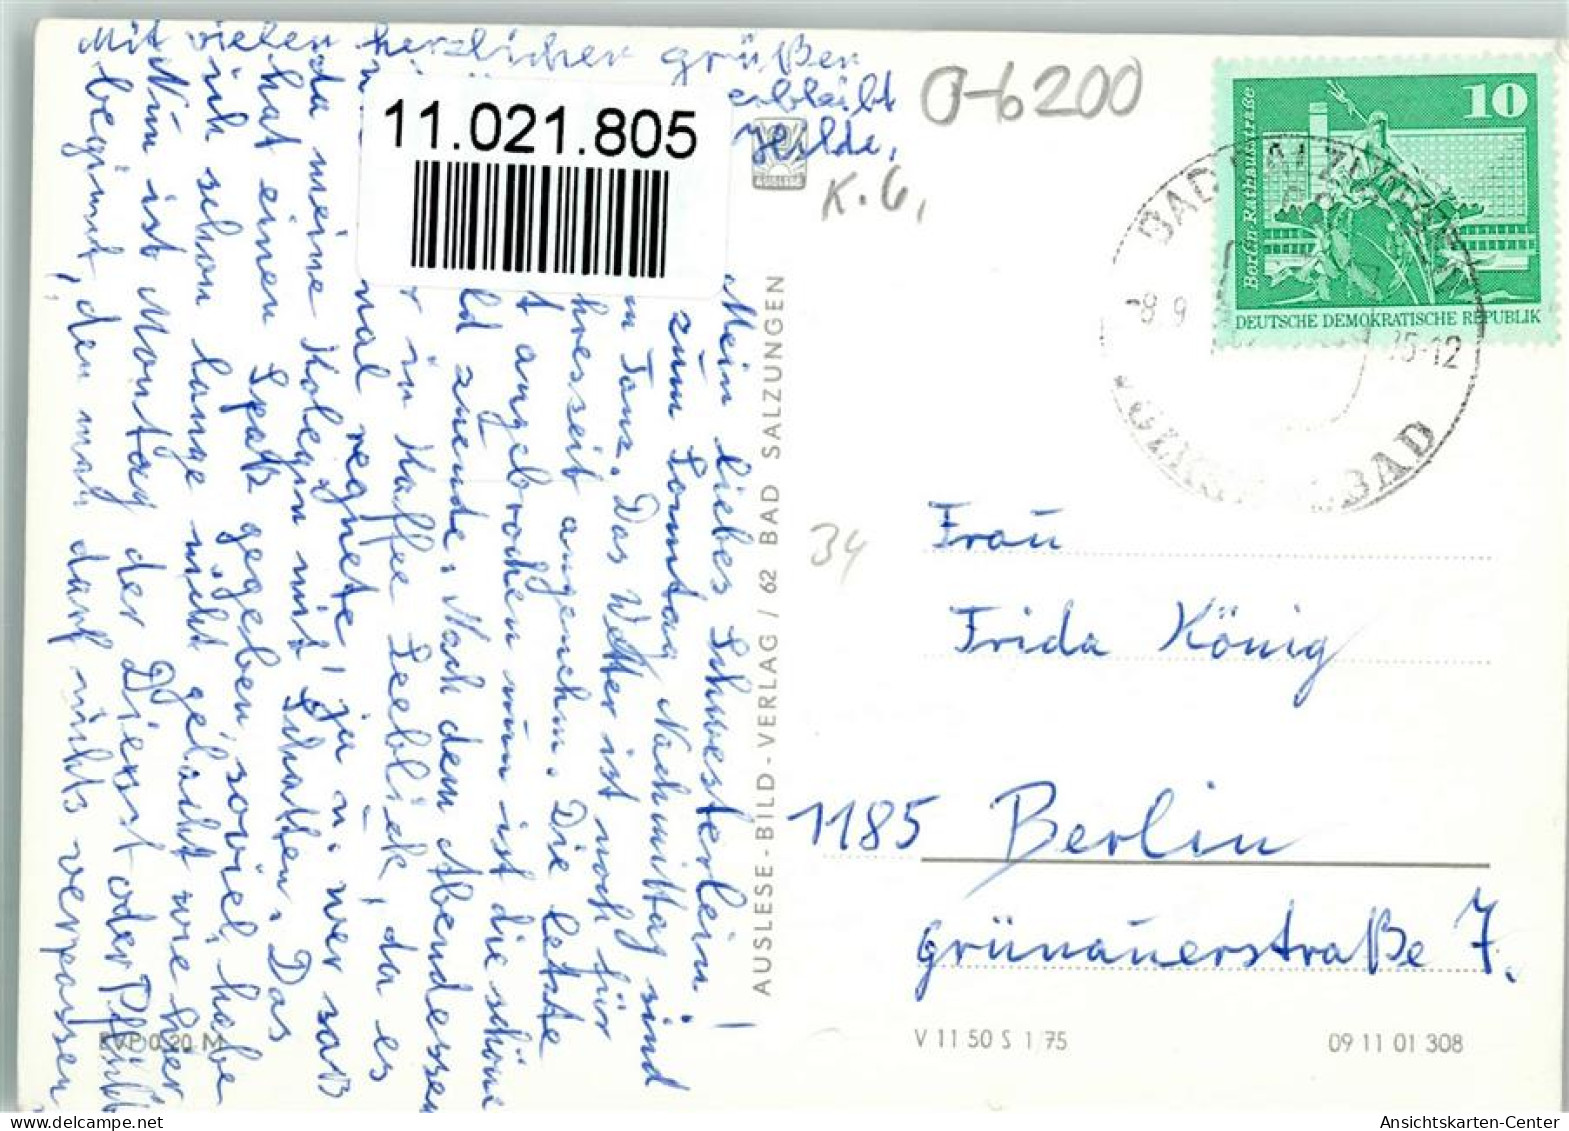 Mein liebes Schwesterlein!
zum Sonntag Nachmittag sind
Tanz. Das Wetter ist noch für
angenehm. Die letzte
angebrochen nun ist die schöne
zuende. Nach dem Abendessen
in Kaffee Seeblick, da es
mal regnete! ja u. wer saß
da meine Kolegin mit Schatten. Das
hat einen Spaß gegeben, soviel habe
ich schon lange nicht gelacht wie hier
Nun ist Montag der Dienst oder Pflicht
beginnt, den man darf nichts verpassen
Mit vielen herzlichen grüßen
erbleibt
Hilde.
11.021.805
AUSLESE
K.G.
0-6200
34
AUSLESE-BILD-VERLAG / 62 BAD SALZUNGEN
10
Berlin-Rathausstraße
DEUTSCHE DEMOKRATISCHE REPUBLIK
BAD SALZUNGEN
-8 9
75-12
Frau
Frida König
1185 Berlin
grünauerstraße 7.
EVP 0,20 M
V 11 50 S 1/75
09 11 01 308
Ansichtskarten-Center